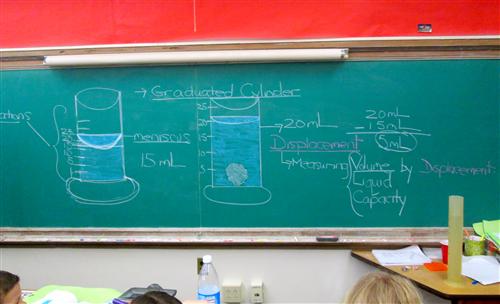 → Graduated Cylinder
ations
meniscus
15 mL
25
20
15
10
5
→ 20 mL
Displacement
↳ Measuring Volume by Displacement.
Liquid
Capacity
20 mL
- 15 mL
5 mL